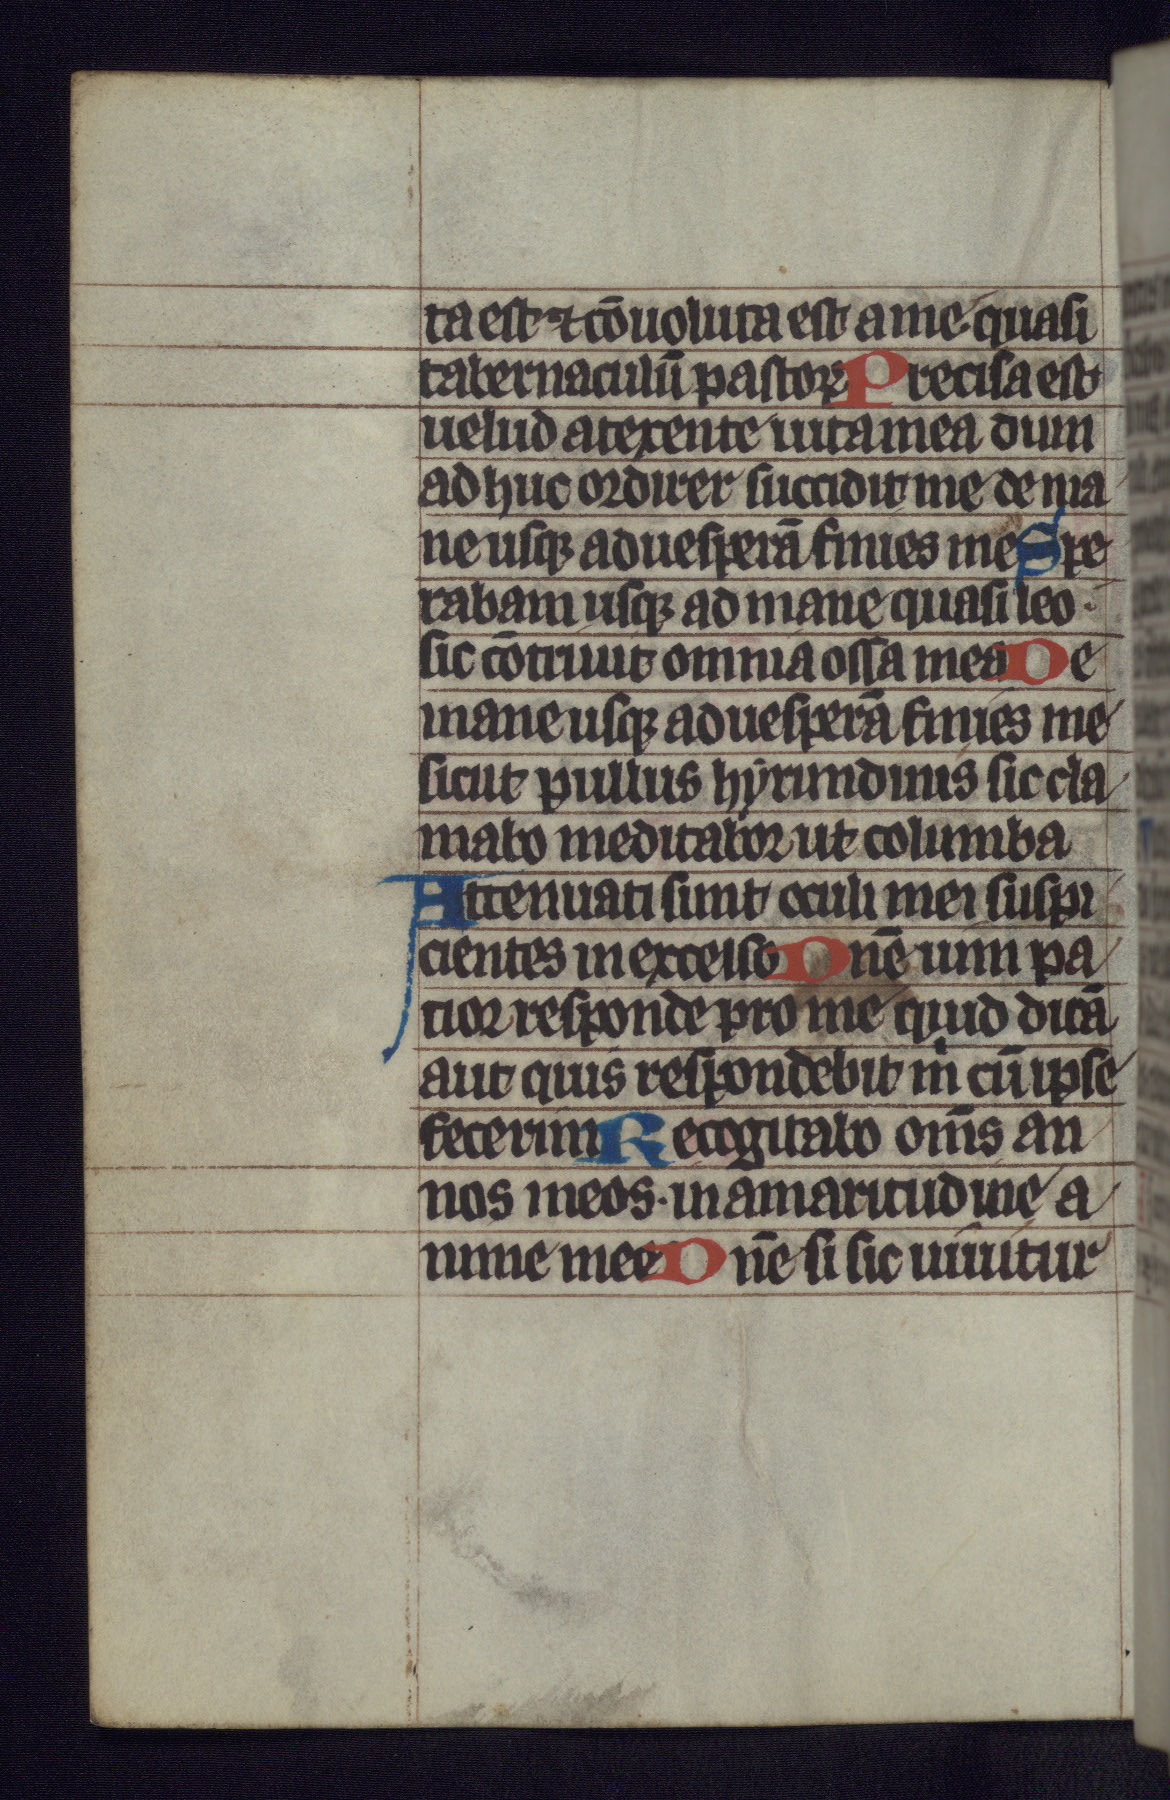 ta est ⁊ cōuoluta est a me· quasi
tabernaculū pastoꝝ Precisa est
uelud a texente uita mea dum
ad huc ordirer succidit me de ma
ne usqꝫ ad uesperā finies me Spe
rabam usqꝫ ad mane quasi leo·
sic cōtriuit omnia ossa mea De
mane usqꝫ ad uesperā finies me
sicut pullus hyrundinis sic cla
mabo meditabor ut columba
Attenuati sunt oculi mei suspi
cientes in excelso Dn̄e uim pa
tior responde pro me quid dicā
aut quis respondebit m̄ cū ipse
fecerim Recogitabo om̄s an
nos meos· in amaritudine a
nime mee Dn̄e si sic uiuitur